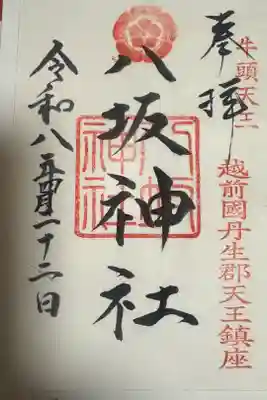 牛頭天王
越前國丹生郡天王鎮座
奉拝
八坂神社
八坂神社
令和八年 月二十二日